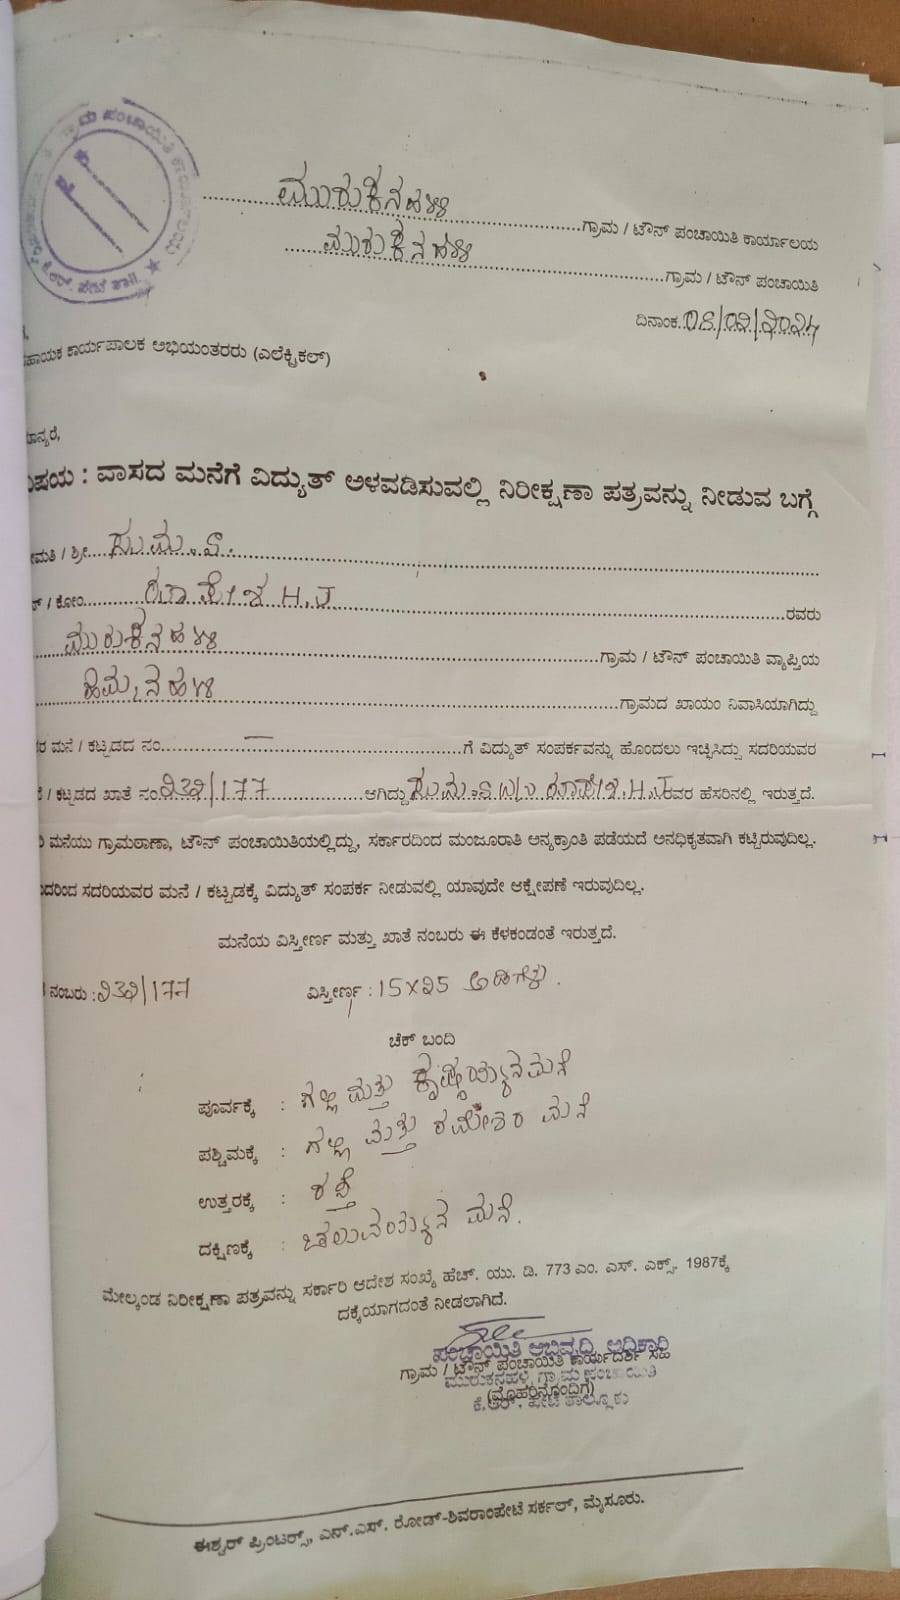 ಗ್ರಾಮ ಪಂಚಾಯಿತಿ
ಕೆ.ಆರ್. ಪೇಟೆ ತಾ||
ಮುರುಕನಹಳ್ಳಿ ಗ್ರಾಮ / ಟೌನ್ ಪಂಚಾಯಿತಿ ಕಾರ್ಯಾಲಯ
ಮುರುಕನಹಳ್ಳಿ ಗ್ರಾಮ / ಟೌನ್ ಪಂಚಾಯಿತಿ
ದಿನಾಂಕ
ಕಾರ್ಯಪಾಲಕ ಅಭಿಯಂತರರು (ಎಲೆಕ್ಟ್ರಿಕಲ್)
ವಾಸದ ಮನೆಗೆ ವಿದ್ಯುತ್ ಅಳವಡಿಸುವಲ್ಲಿ ನಿರೀಕ್ಷಣಾ ಪತ್ರವನ್ನು ನೀಡುವ ಬಗ್ಗೆ
/ ಶ್ರೀ
/ ಕೋಂ H.J ರವರು
ಮುರುಕನಹಳ್ಳಿ ಗ್ರಾಮ / ಟೌನ್ ಪಂಚಾಯಿತಿ ವ್ಯಾಪ್ತಿಯ
ಗ್ರಾಮದ ಖಾಯಂ ನಿವಾಸಿಯಾಗಿದ್ದು
ಮನೆ / ಕಟ್ಟಡದ ನಂ. — ಗೆ ವಿದ್ಯುತ್ ಸಂಪರ್ಕವನ್ನು ಹೊಂದಲು ಇಚ್ಛಿಸಿದ್ದು ಸದರಿಯವರ
/ ಕಟ್ಟಡದ ಖಾತೆ ನಂ. ೨೩೨/೧೭೭ ಆಗಿದ್ದು H.J ರವರ ಹೆಸರಿನಲ್ಲಿ ಇರುತ್ತದೆ.
ಮನೆಯು ಗ್ರಾಮಠಾಣಾ, ಟೌನ್ ಪಂಚಾಯಿತಿಯಲ್ಲಿದ್ದು, ಸರ್ಕಾರದಿಂದ ಮಂಜೂರಾತಿ ಅನ್ಯಕ್ರಾಂತಿ ಪಡೆಯದೆ ಅನಧಿಕೃತವಾಗಿ ಕಟ್ಟಿರುವುದಿಲ್ಲ.
ಸದರಿಯವರ ಮನೆ / ಕಟ್ಟಡಕ್ಕೆ ವಿದ್ಯುತ್ ಸಂಪರ್ಕ ನೀಡುವಲ್ಲಿ ಯಾವುದೇ ಆಕ್ಷೇಪಣೆ ಇರುವುದಿಲ್ಲ.
ಮನೆಯ ವಿಸ್ತೀರ್ಣ ಮತ್ತು ಖಾತೆ ನಂಬರು ಈ ಕೆಳಕಂಡಂತೆ ಇರುತ್ತದೆ.
ನಂಬರು : ೨೩೨/೧೭೭ ವಿಸ್ತೀರ್ಣ : 15×೨5 ಅಡಿಗಳು.
ಚೆಕ್ ಬಂದಿ
ಪೂರ್ವಕ್ಕೆ : ಗಲ್ಲಿ ಮತ್ತು ಕೃಷ್ಣಯ್ಯನ ಮನೆ
ಪಶ್ಚಿಮಕ್ಕೆ : ಗಲ್ಲಿ ಮತ್ತು ರಮೇಶರ ಮನೆ
ಉತ್ತರಕ್ಕೆ : ರಸ್ತೆ
ದಕ್ಷಿಣಕ್ಕೆ : ಚಲುವಯ್ಯನ ಮನೆ.
ಮೇಲ್ಕಂಡ ನಿರೀಕ್ಷಣಾ ಪತ್ರವನ್ನು ಸರ್ಕಾರಿ ಆದೇಶ ಸಂಖ್ಯೆ ಹೆಚ್. ಯು. ಡಿ. 773 ಎಂ. ಎಸ್. ಎಕ್ಸ್. 1987ಕ್ಕೆ
ದಕ್ಕೆಯಾಗದಂತೆ ನೀಡಲಾಗಿದೆ.
ಪಂಚಾಯಿತಿ ಅಭಿವೃದ್ಧಿ ಅಧಿಕಾರಿ
ಗ್ರಾಮ / ಟೌನ್ ಪಂಚಾಯಿತಿ ಕಾರ್ಯದರ್ಶಿ ಸಹಿ
ಮುರುಕನಹಳ್ಳಿ ಗ್ರಾಮ ಪಂಚಾಯಿತಿ
(ಮೊಹರಿನೊಂದಿಗೆ)
ಕೆ.ಆರ್. ಪೇಟೆ ತಾಲ್ಲೂಕು
ಈಶ್ವರ್ ಪ್ರಿಂಟರ್ಸ್, ಎನ್.ಎಸ್. ರೋಡ್-ಶಿವರಾಂಪೇಟೆ ಸರ್ಕಲ್, ಮೈಸೂರು.